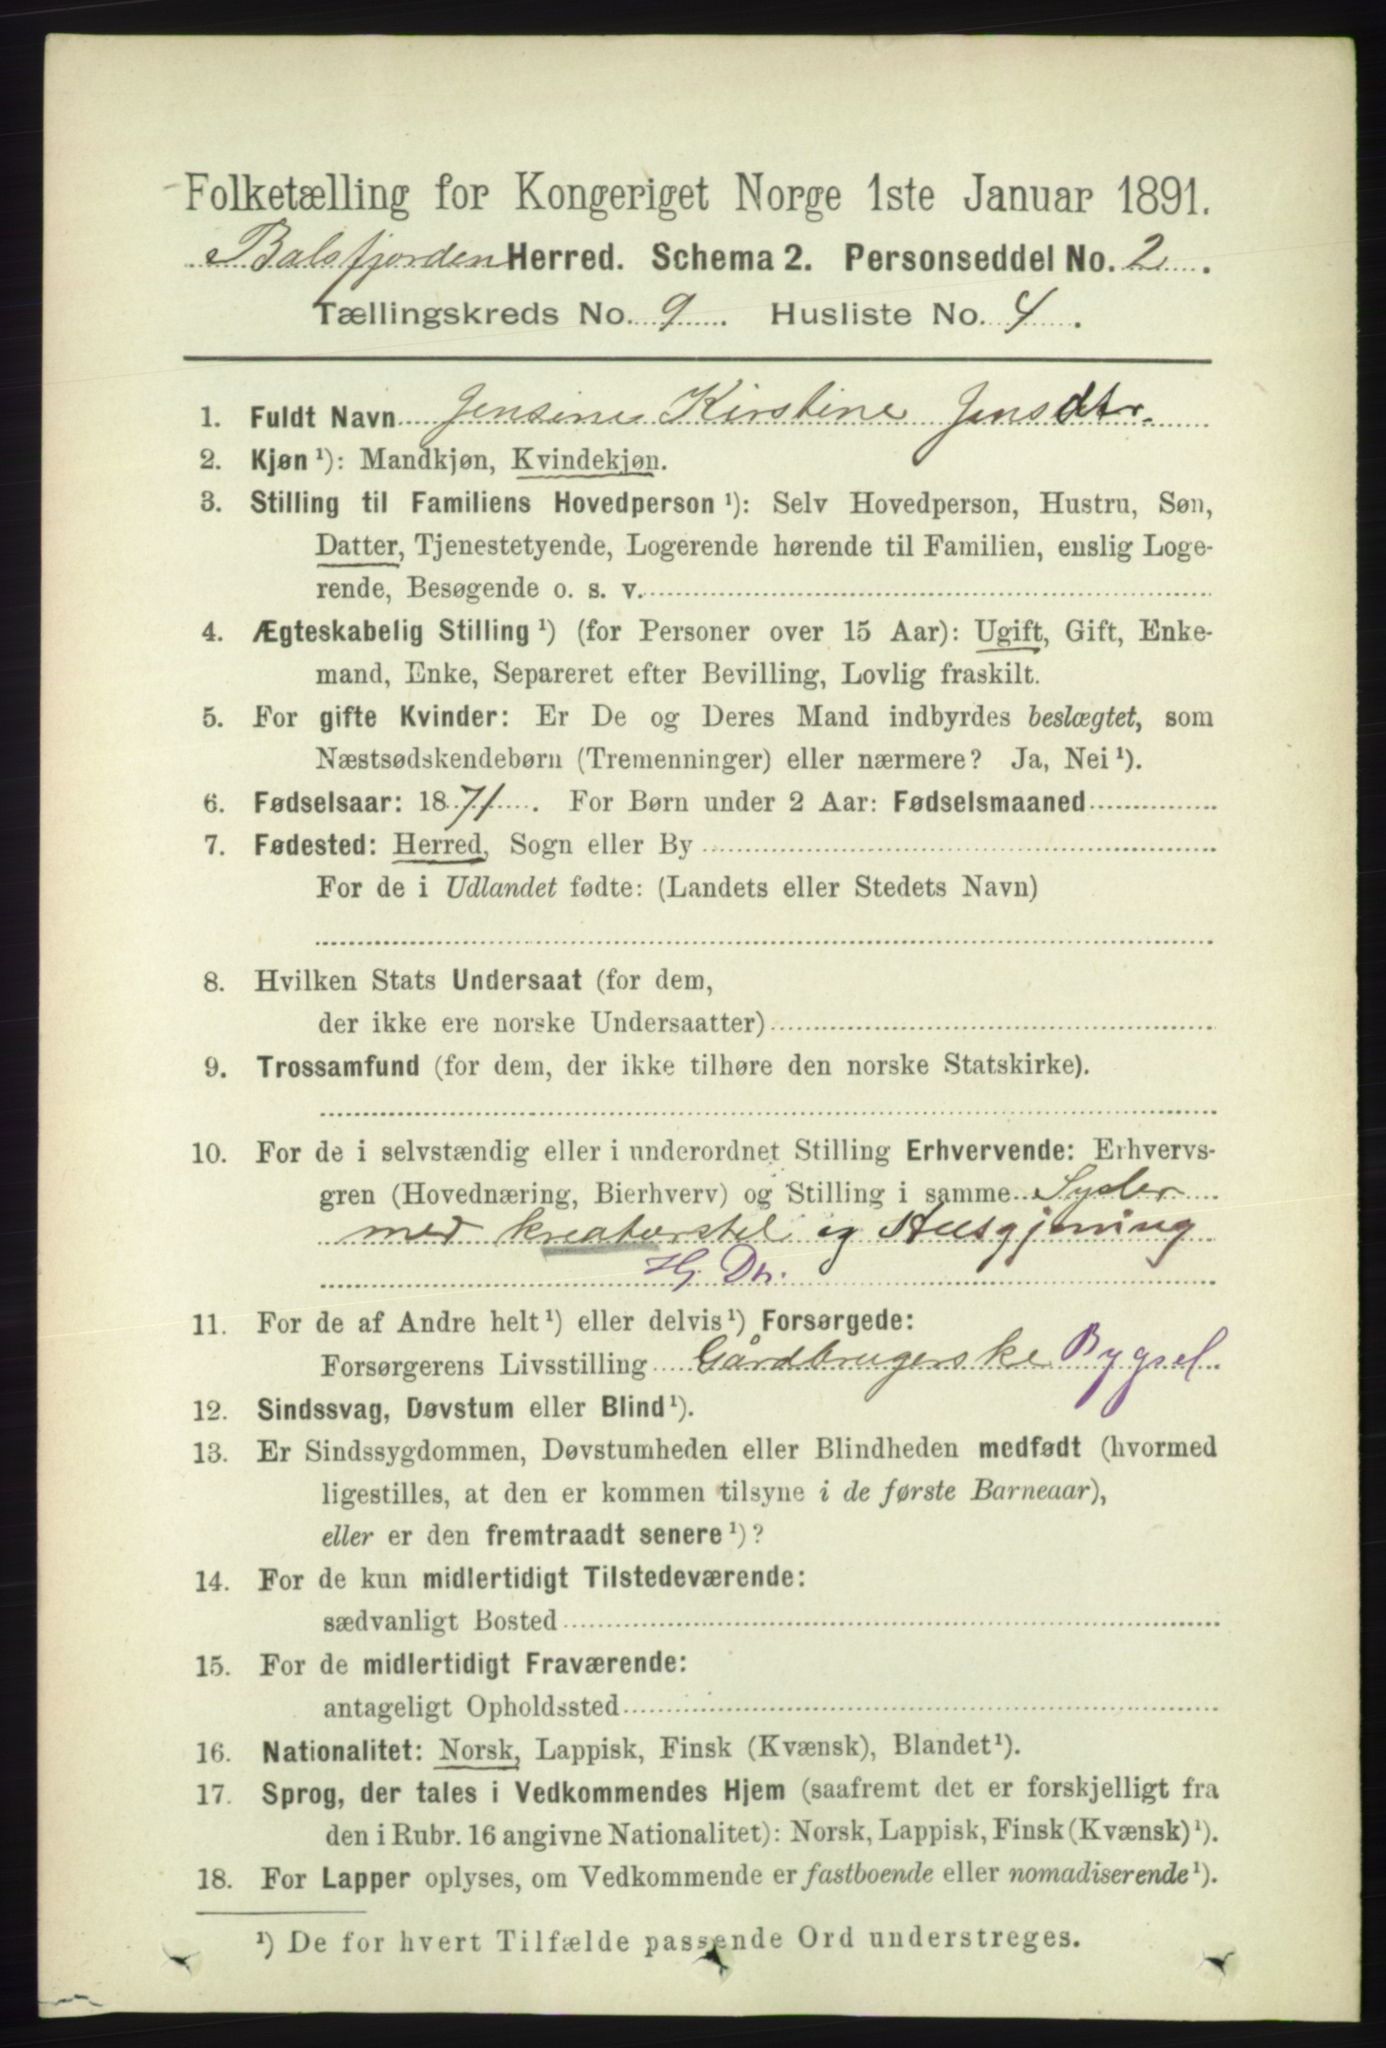 Folketælling for Kongeriget Norge 1ste Januar 1891.
Balsfjorden Herred. Schema 2. Personseddel No. 2.
Tællingskreds No. 9. Husliste No. 4.
1. Fuldt Navn Jensine Kirstine Jensdtr.
2. Kjøn ¹): Mandkjøn, Kvindekjøn.
3. Stilling til Familiens Hovedperson ¹): Selv Hovedperson, Hustru, Søn,
Datter, Tjenestetyende, Logerende hørende til Familien, enslig Loge-
rende, Besøgende o. s. v.
4. Ægteskabelig Stilling ¹) (for Personer over 15 Aar): Ugift, Gift, Enke-
mand, Enke, Separeret efter Bevilling, Lovlig fraskilt.
5. For gifte Kvinder: Er De og Deres Mand indbyrdes beslægtet, som
Næstsødskendebørn (Tremenninger) eller nærmere? Ja, Nei ¹).
6. Fødselsaar: 1871. For Børn under 2 Aar: Fødselsmaaned
7. Fødested: Herred, Sogn eller By
For de i Udlandet fødte: (Landets eller Stedets Navn)
8. Hvilken Stats Undersaat (for dem,
der ikke ere norske Undersaatter)
9. Trossamfund (for dem, der ikke tilhøre den norske Statskirke).
10. For de i selvstændig eller i underordnet Stilling Erhvervende: Erhvervs-
gren (Hovednæring, Bierhverv) og Stilling i samme Sysler
med kreaturstel og Husgjerning
H. Dtr.
11. For de af Andre helt ¹) eller delvis ¹) Forsørgede:
Forsørgerens Livsstilling Gårdbrugerske Bygsel.
12. Sindssvag, Døvstum eller Blind ¹).
13. Er Sindssygdommen, Døvstumheden eller Blindheden medfødt (hvormed
ligestilles, at den er kommen tilsyne i de første Barneaar),
eller er den fremtraadt senere ¹)?
14. For de kun midlertidigt Tilstedeværende:
sædvanligt Bosted
15. For de midlertidigt Fraværende:
antageligt Opholdssted
16. Nationalitet: Norsk, Lappisk, Finsk (Kvænsk), Blandet ¹).
17. Sprog, der tales i Vedkommendes Hjem (saafremt det er forskjelligt fra
den i Rubr. 16 angivne Nationalitet): Norsk, Lappisk, Finsk (Kvænsk) ¹).
18. For Lapper oplyses, om Vedkommende er fastboende eller nomadiserende ¹).
¹) De for hvert Tilfælde passende Ord understreges.